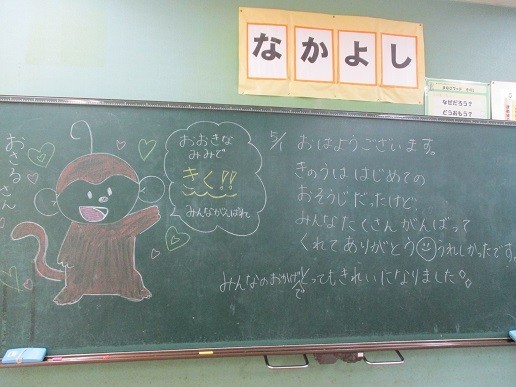 なかよし
なぜだろう？
どうおもう？
おさるさん
おおきな
みみで
きく!!
みんながんばれ
5/1 おはようございます。
きのうは はじめての
おそうじだったけど、
みんなたくさんがんばって
くれてありがとう うれしかったです。
みんなのおかげで とってもきれいになりました